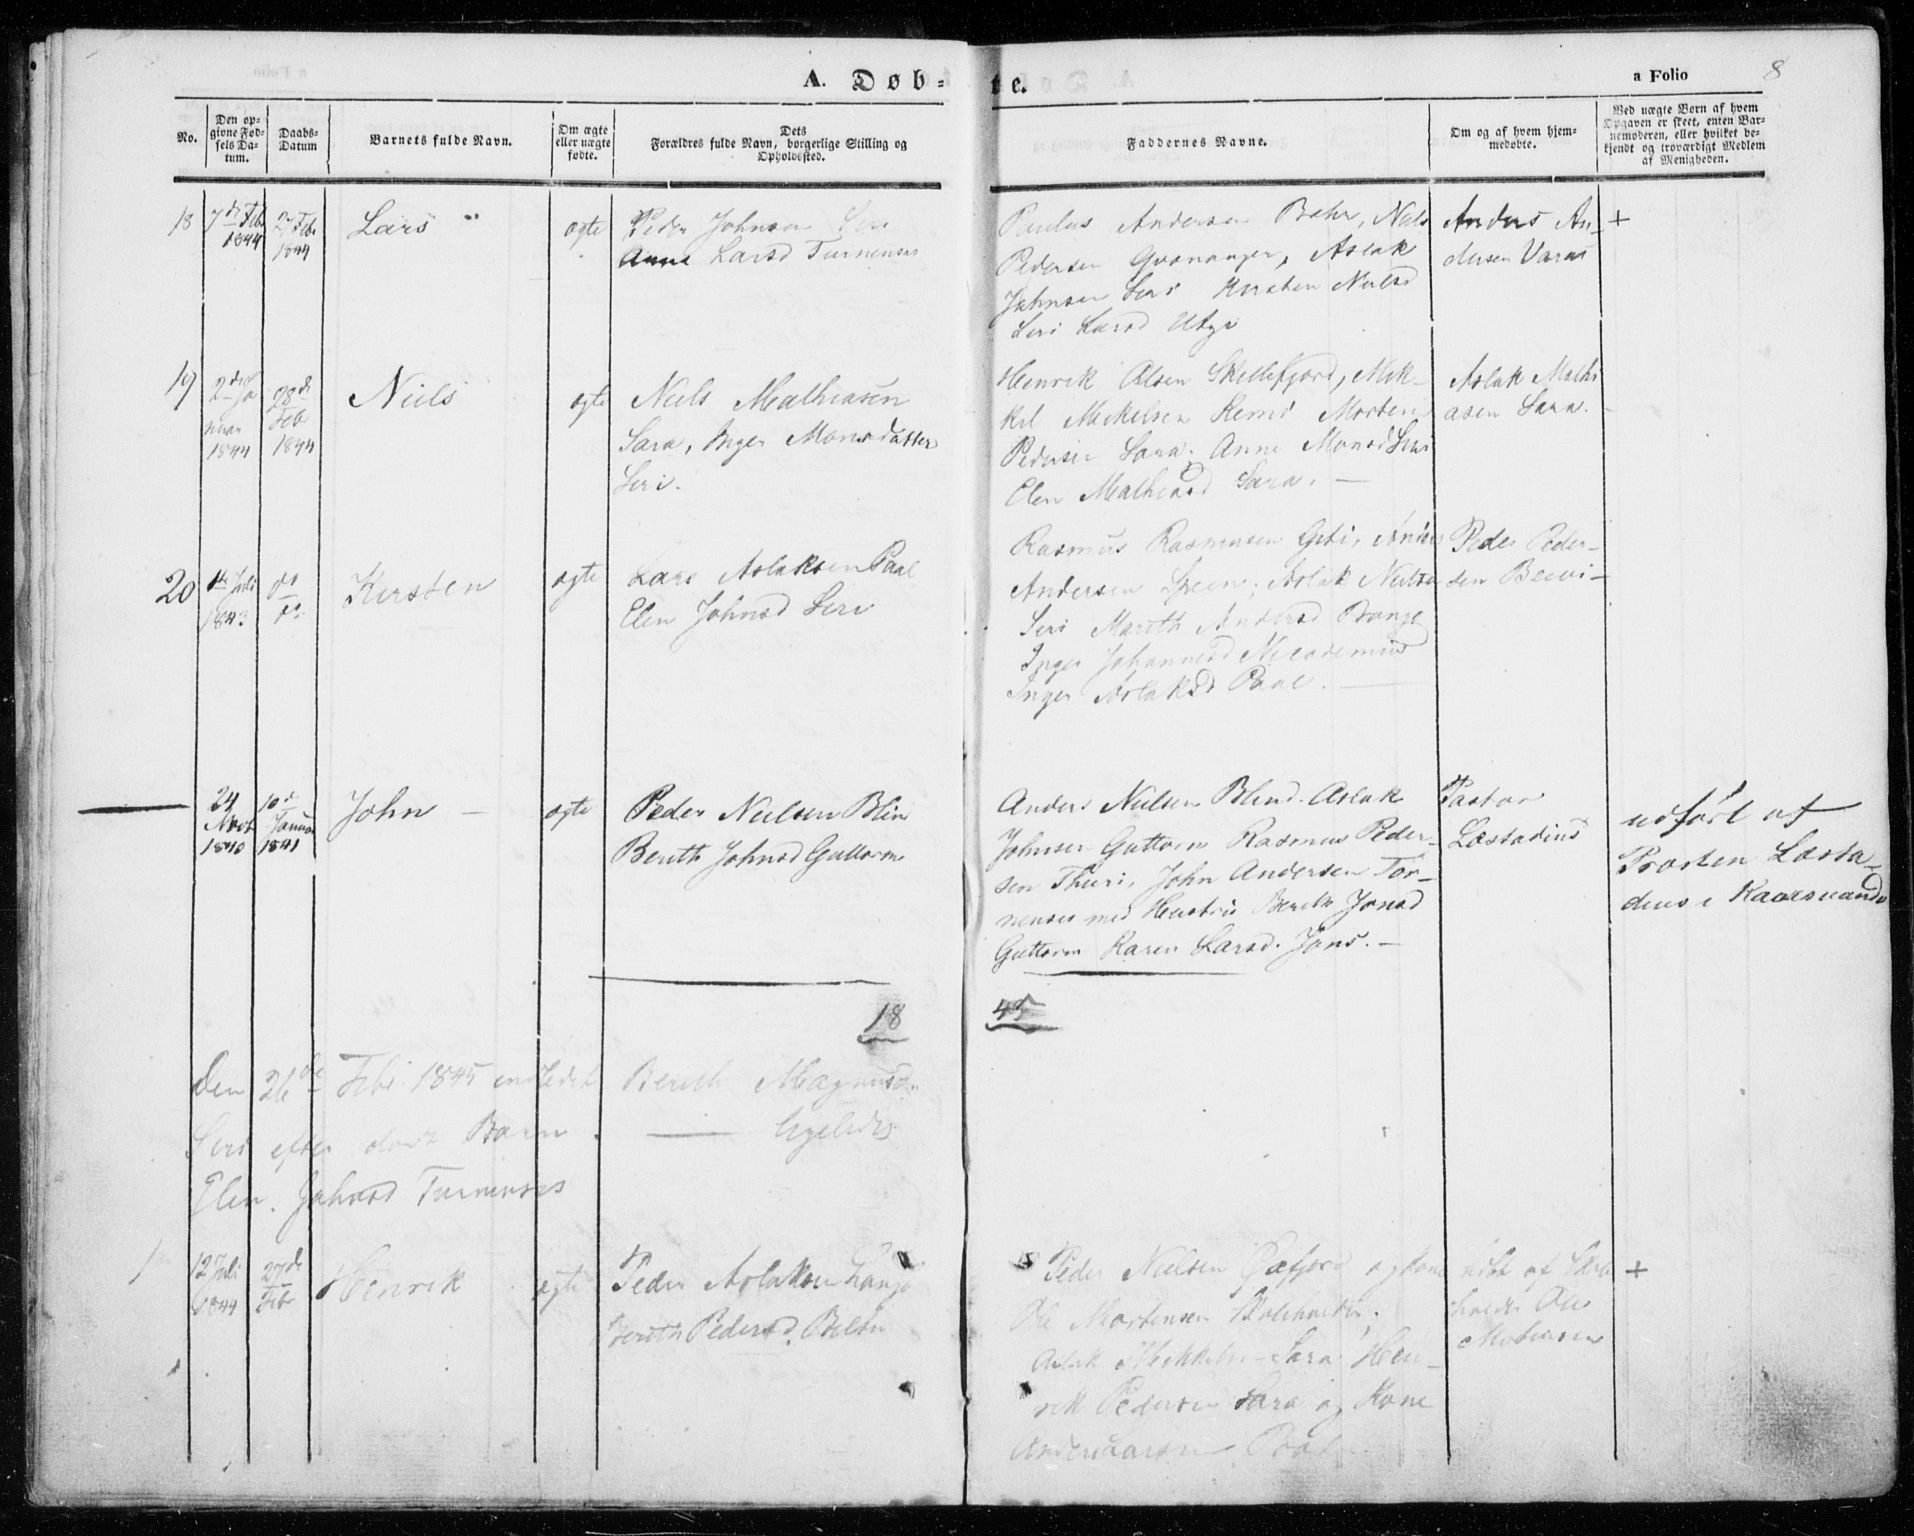 A. Døb-
te.
a Folio 8
No.
Den op-
givne Fød-
sels Da-
tum.
Daabs-
Datum
Barnets fulde Navn.
Om ægte
eller uægte
fødte.
Dets
Forældres fulde Navn, borgerlige Stilling og
Opholdssted.
Faddernes Navne.
Om og af hvem hjem-
medøbte.
Ved uægte Børn af hvem
Opgaven er skeet, enten Bar-
nemoderen, eller hvilket be-
kjendt og troværdigt Medlem
af Menigheden.
18
7de Febr
1844
27 Febr
1844
Lars
ægte
Peder Johnsen Siri
Anne Larsd Turnensis
Paulus Andersen Bahr, Niels
Pedersen Qvananger, Aslak
Johnsen Siri Kirsten Nielsd
Siri Larsd Utzi
Anders An-
dersen Varas
+
19
2den Ja
nuar
1844
28de
Feb
1844
Niels
ægte
Niels Mathiasen
Sara, Inger Monsdatter
Siri.
Henrik Olsen Skillefjord, Mik-
kel Mikkelsen Kemi Morten
Pedersen Sara. Anne Monsd Siri
Elen Mathiasd Sara. —
Aslak Mathi
asen Sara.
20
1ste Juli
1843
do
do
Kirsten
ægte
Lars Aslaksen Paal
Elen Johnsd Siri
Rasmus Rasmusen Gebi, Anders
Andersen Spein, Aslak Nielsen
Siri Mareth Andersd Bonge
Inger Johannesd Nicodemus
Inger Aslaksd Paal. —
Peder Peder-
sen Beevi-
24
Novb
1840
10de
Januar
1841
John —
ægte
Peder Nielsen Blin
Berith Johnsd Guttorm
Anders Nielsen Blind. Aslak
Johnsen Guttorm Rasmus Peder-
sen Thuri, John Andersen Tor-
nensis med Hustru Berith Jonsd
Guttorm Karen Larsd. Jons. —
Pastor
Læstadius
udført af
Prosten Læsta-
dius i Kaaresuando
18
45
Den 26de Febr 1845 indledet
Siri efter dødt Barn.
Elen Johnsd Turnensis
Berith Magnusd
— Ugelides
1
12 Juli
1844
27de
Febr
Henrik
ægte
Peder Aslaksen Lango
Berith Pedersd. Beltn
Peder Nielsen Qvæfjord og Kone
Ole Mortensen Skoleholder.
Aslak Mikkelsen Sara Hen-
rik Pedersen Sara og Kone
Anders Larsen Paal
døbt af Skole
holder Ole
Mortensen
+